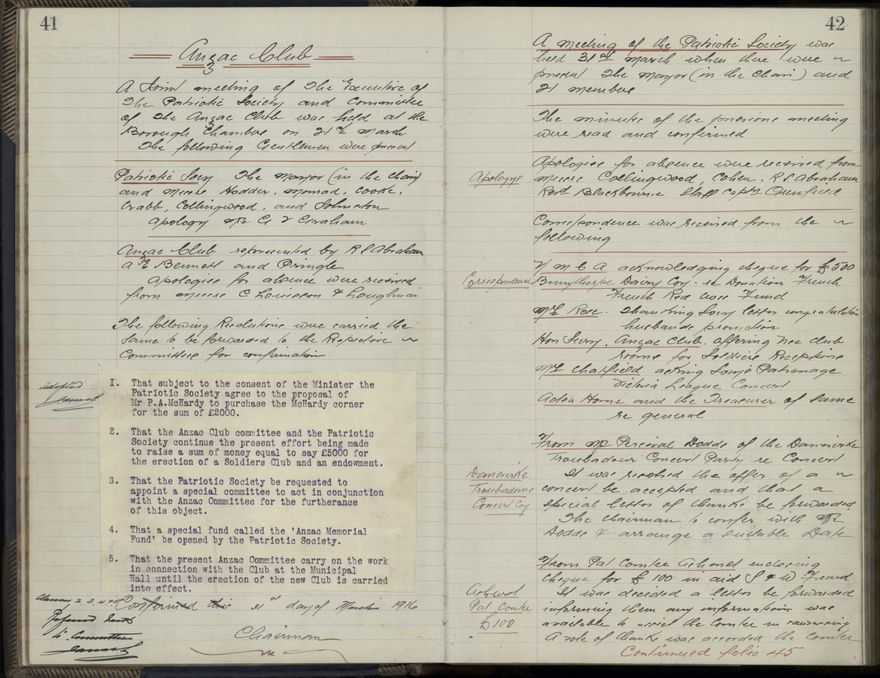 41
Anzac Club
A Joint meeting of the Executive of
the Patriotic Society and Committee
of the Anzac Club was held at the
Borough Chambers on 31st March
The following Gentlemen were present
Patriotic Socy The Mayor (in the Chair)
and Messrs Hodder, Monrad, Cooke,
Crabb, Collingwood, and Johnston
Apology Mr G
Anzac Club represented by R S Abraham
A E Bennett and Pringle
Apologies for absence were received
from Messrs C Louisson & Loughnan
The following Resolutions were carried the
same to be forwarded to the Respective
Committees for confirmation
adopted
1. That subject to the consent of the Minister the
Patriotic Society agree to the proposal of
Mr P.A.McHardy to purchase the McHardy corner
for the sum of £2000.
2. That the Anzac Club committee and the Patriotic
Society continue the present effort being made
to raise a sum of money equal to say £5000 for
the erection of a Soldiers Club and an endowment.
3. That the Patriotic Society be requested to
appoint a special committee to act in conjunction
with the Anzac Committee for the furtherance
of this object.
4. That a special fund called the 'Anzac Memorial
Fund' be opened by the Patriotic Society.
5. That the present Anzac Committee carry on the work
in connection with the Club at the Municipal
Hall until the erection of the new Club is carried
into effect.
Clauses 2, 3, 4
Referred back
to Committee
Confirmed this 31st day of March 1916
Chairman
42
A meeting of the Patriotic Society was
held 31st March when there were
present the Mayor (in the Chair) and
21 members
The minutes of the previous meeting
were read and confirmed
Apologys
Apologies for absence were received from
Messrs Collingwood, Cohen, R S Abraham
Revd Blackbourne Staff Captn Greenfield
Correspondence was received from the
following
Correspondence
Y M C A acknowledging cheque for £500
Bunnythorpe Dairy Coy. re Donation French
French Red Cross Fund
Mrs Rose. Thanking Socy letter congratulation
husbands promotion
Hon Secry. Anzac Club. offering use club
rooms for Soldiers Receptions
Mrs Chatfield asking Socys Patronage
Victoria League Concert
Aotea Home and the Treasurer of same
re general
Dannevirke
Troubadours
Concert Coy
From Mr Percival Dodds of the Dannevirke
Troubadour Concert Party re Concert
It was resolved the offer of a
concert be accepted and that a
special letter of thanks be forwarded
The Chairman to confer with Mr
Dodds & arrange a suitable Date
Ashhurst
Pat Comtee
£100
From Pat Comtee Ashhurst enclosing
cheque for £100 in aid S & W Fund
It was decided a letter be forwarded
informing them any information was
available to assist the Comtee in
A vote of thanks was accorded the Comtee
Continued folio 45